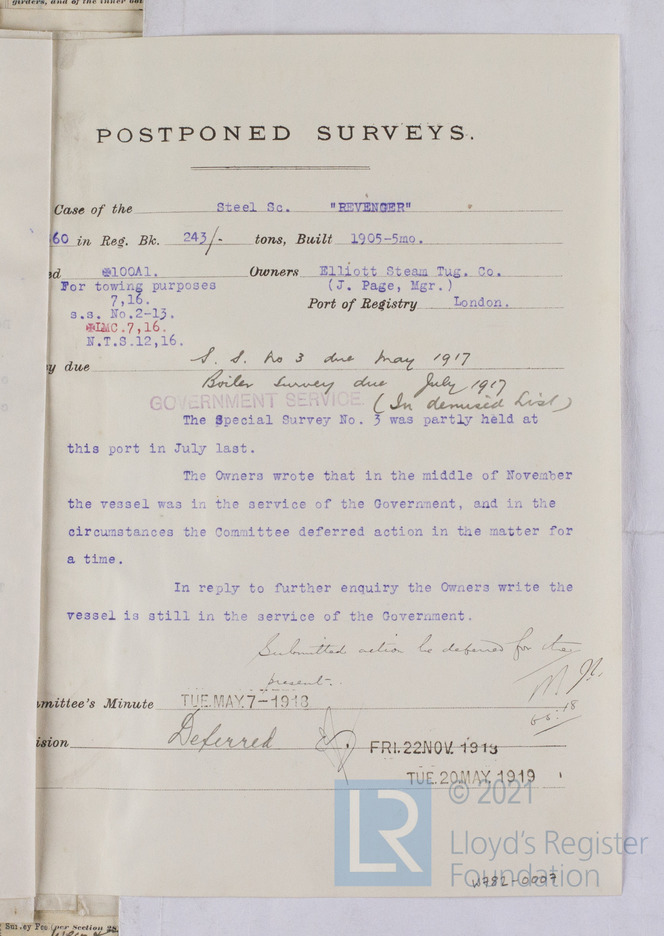 girders, and of the inner bot
POSTPONED SURVEYS.
Case of the Steel Sc. "REVENGER"
60 in Reg. Bk. 243/- tons, Built 1905-5mo.
ed @100A1. Owners Elliott Steam Tug. Co.
For towing purposes (J. Page, Mgr.)
7,16. Port of Registry London.
s.s. No.2-13.
@LMC.7,16.
N.T.S.12,16.
y due S. S. No 3 due May 1917
Boiler Survey due July 1917
GOVERNMENT SERVICE. (In demised List)
The Special Survey No. 3 was partly held at
this port in July last.
The Owners wrote that in the middle of November
the vessel was in the service of the Government, and in the
circumstances the Committee deferred action in the matter for
a time.
In reply to further enquiry the Owners write the
vessel is still in the service of the Government.
Submitted action be deferred for the
present.
mmittee's Minute TUE. MAY. 7-1918
ision Deferred
FRI. 22 NOV. 1918
TUE. 20 MAY 1919
LR
© 2021
Lloyd's Register
Foundation
W782-0097
Survey Fee (per Section 28